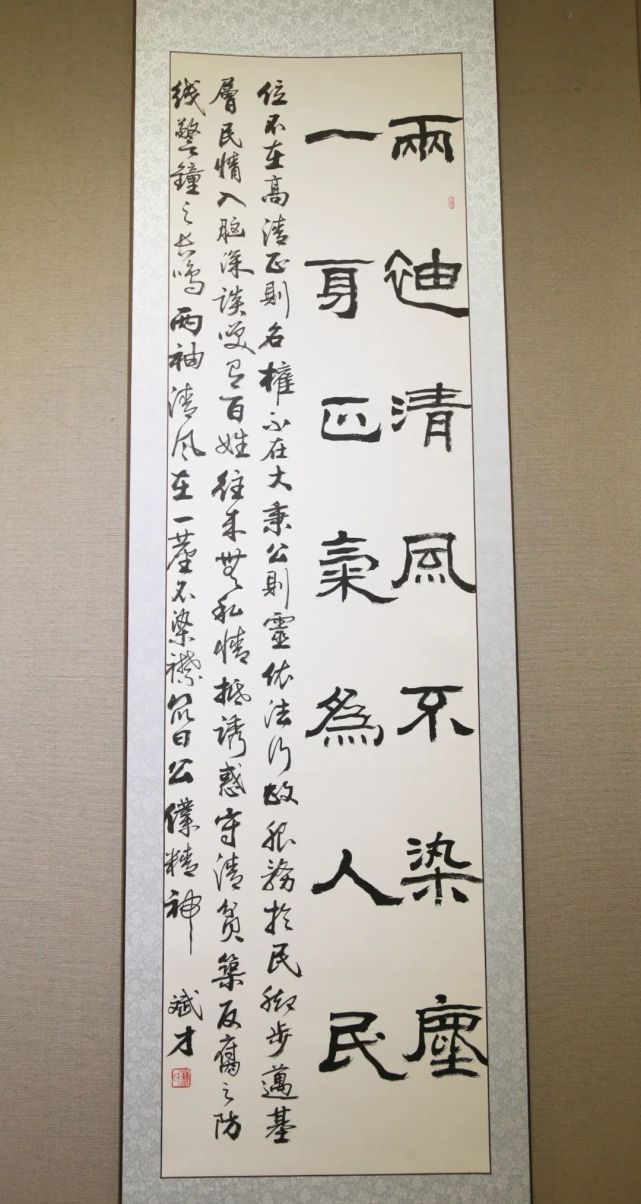 兩袖清風不染塵
一身正氣為人民
位不在高清正則名權不在大秉公則靈依法行政服務於民脚步邁基
層民情入腦深談笑有百姓往來無私情抵誘惑守清貧築反腐之防
綫警鐘之长鸣两袖清风在一塵不染襟众曰公僕精神 斌才